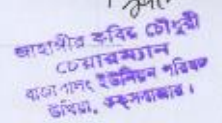 জাহাঙ্গীর কবির চৌধুরী
চেয়ারম্যান
রাজাপালং ইউনিয়ন পরিষদ
উখিয়া, কক্সবাজার।